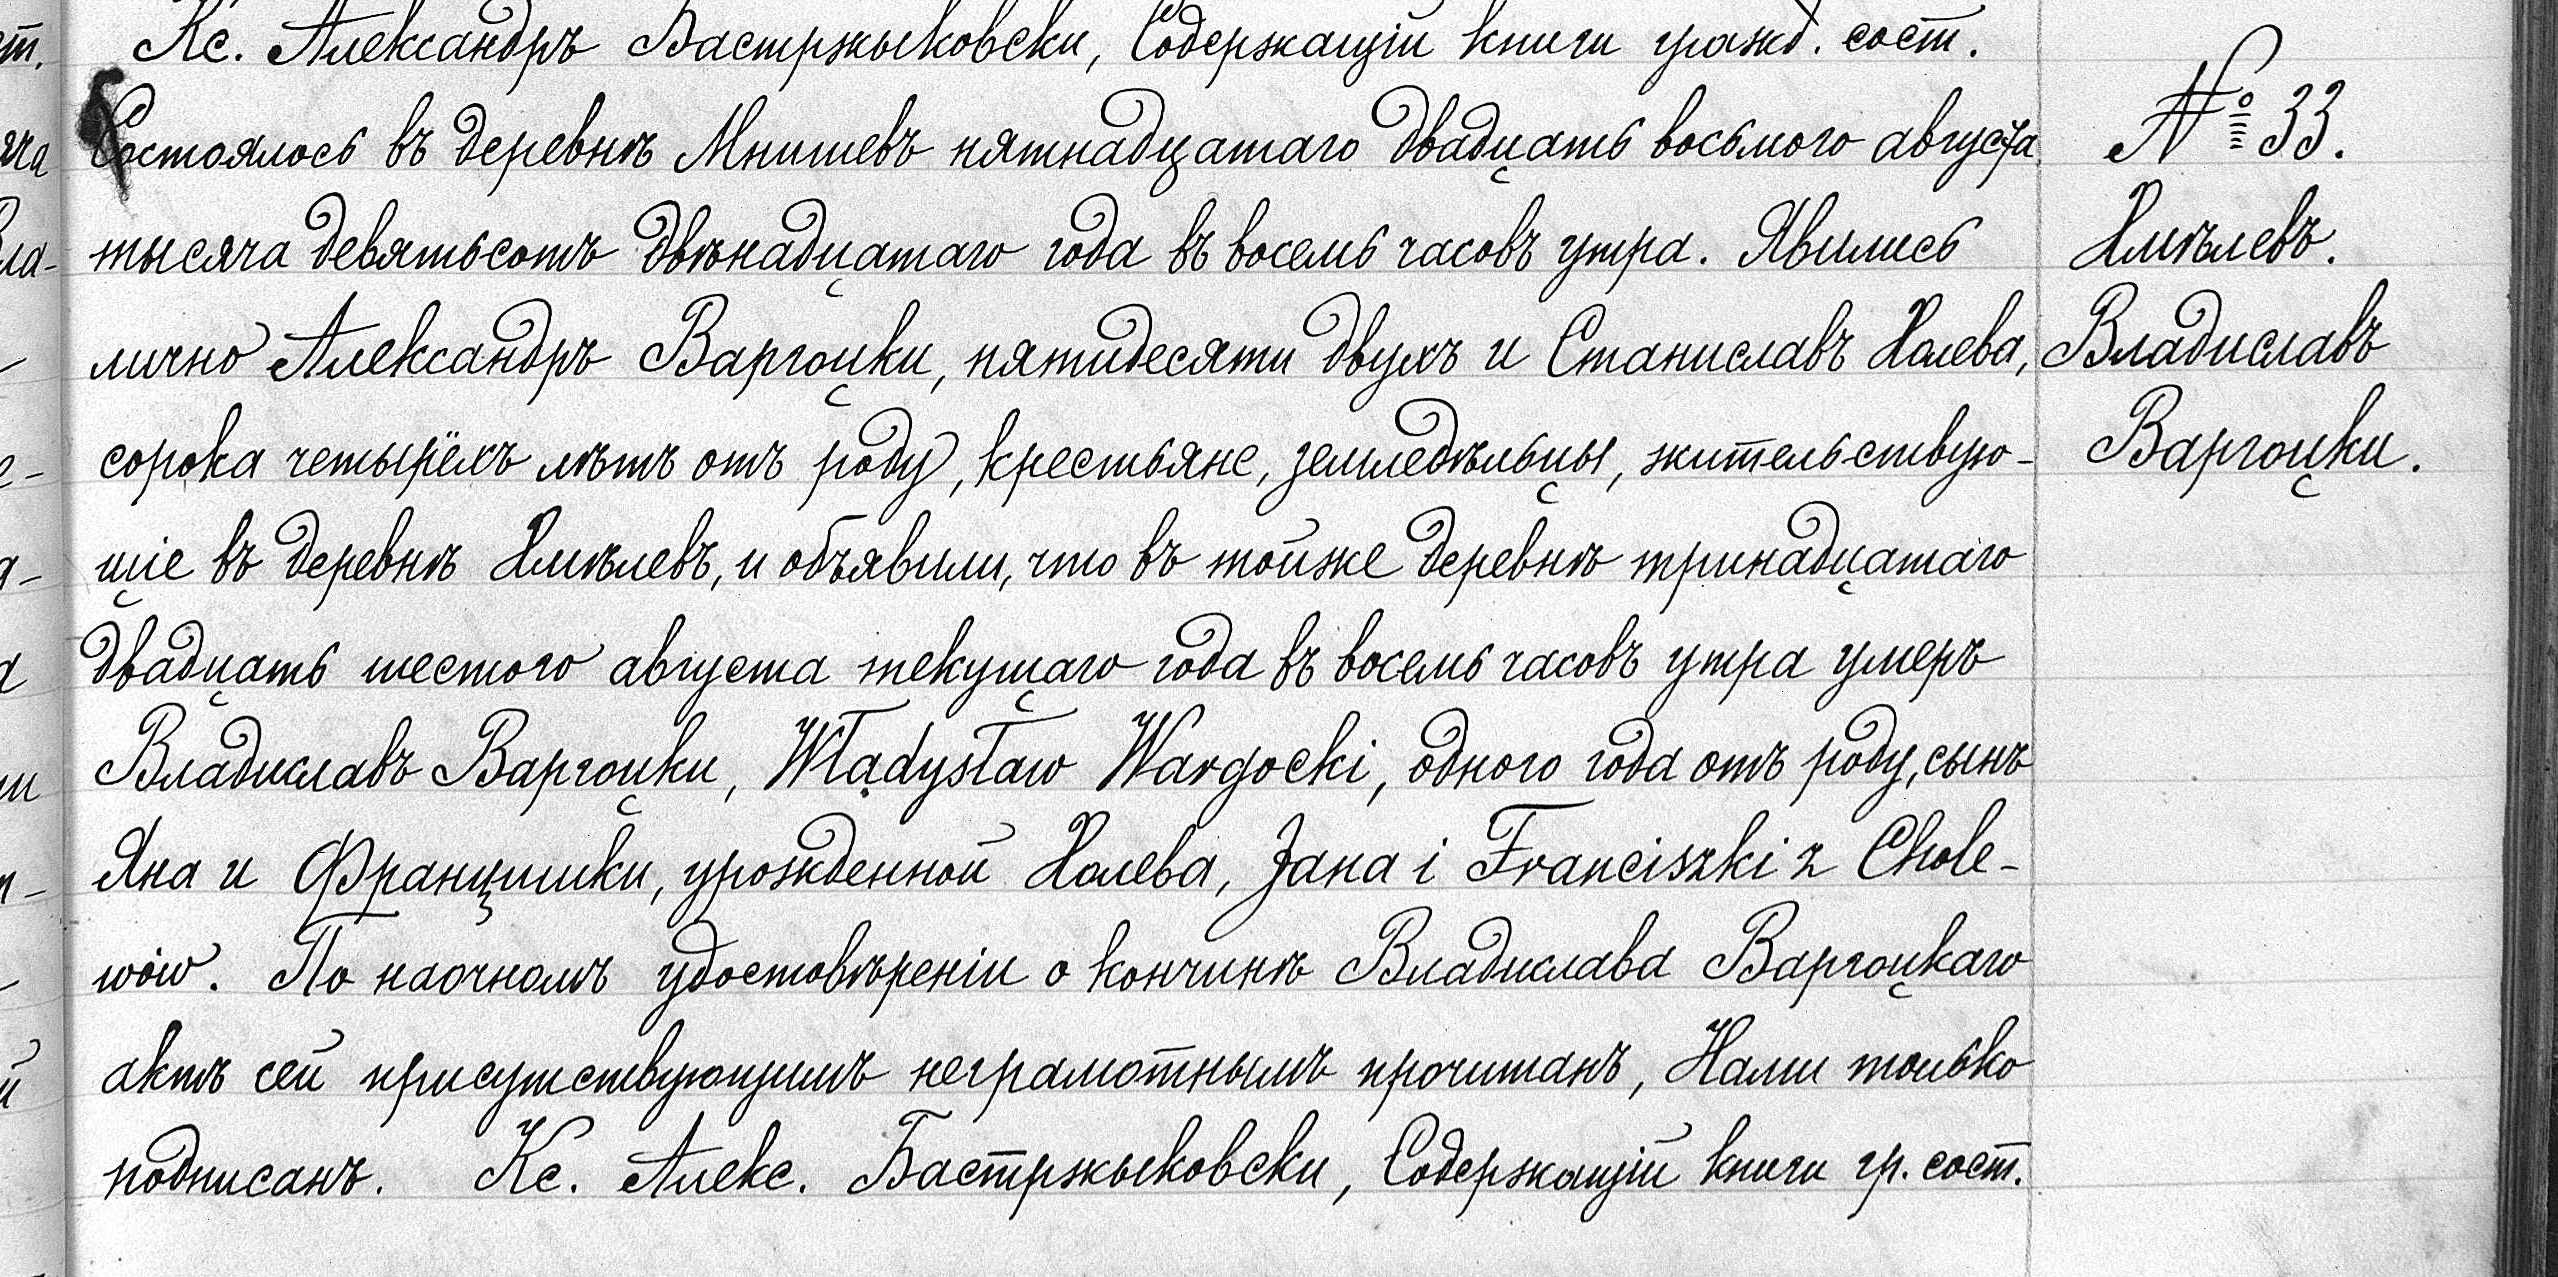 Кс. Александръ Бастржыковски, Содержащій книги гражд. сост.
Состоялось въ деревнѣ Мнишевъ пятнадцатаго двадцать восьмого августа
тысяча девятьсотъ двѣнадцатаго года въ восемь часовъ утра. Явились
лично Александръ Варгоцки, пятидесяти двухъ и Станиславъ Холева,
сорока четырёхъ лѣтъ отъ роду, крестьяне, земледѣльцы, жительствую-
щіе въ деревнѣ Хмѣлевъ, и объявили, что въ тойже деревнѣ тринадцатаго
двадцать шестого августа текущаго года въ восемь часовъ утра умеръ
Владиславъ Варгоцки, Władysław Wargocki, одного года отъ роду, сынъ
Яна и Францишки, урожденной Холева, Jana i Franciszki z Chole-
wów. По наочномъ удостовѣреніи о кончинѣ Владислава Варгоцкаго
актъ сей присутствующимъ неграмотнымъ прочитанъ, Нами только
подписанъ. Кс. Алекс. Бастржыковски, Содержащій книги гр. сост.
№ 33.
Хмѣлевъ.
Владиславъ
Варгоцки.